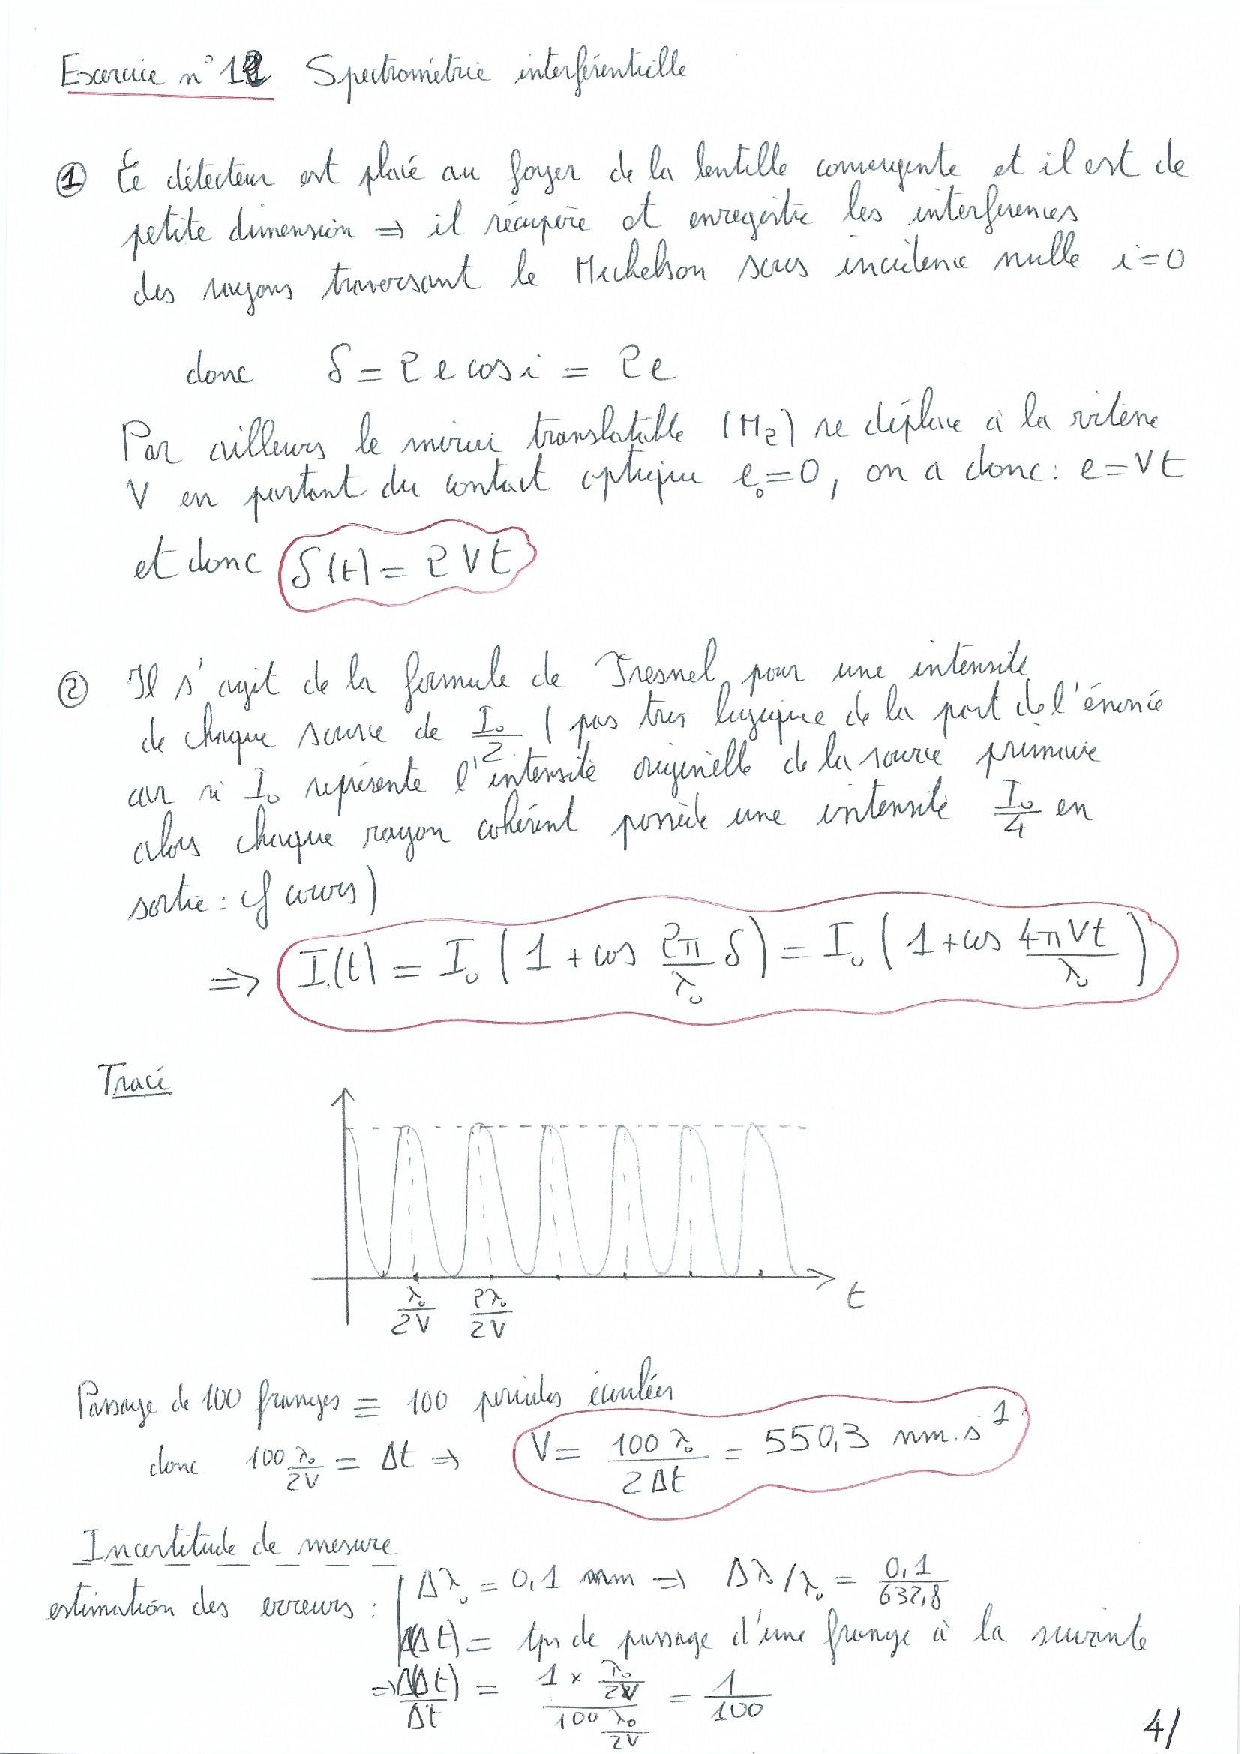 Exercice n°12 Spectrométrie interférentielle
① Le détecteur est placé au foyer de la lentille convergente et il est de
petite dimension ⇒ il récupère et enregistre les interférences
des rayons traversant le Michelson sous incidence nulle i=0
donc δ = 2e cos i = 2e
Par ailleurs le miroir translatable (M₂) se déplace à la vitesse
V en partant du contact optique e₀=0, on a donc : e=Vt
et donc δ(t) = 2Vt
② Il s'agit de la formule de Fresnel pour une intensité
de chaque source de I₀/2 (pas très logique de la part de l'énoncé
car si I₀ représente l'intensité originelle de la source primaire
alors chaque rayon cohérent possède une intensité I₀/4 en
sortie : cf cours)
⇒ I(t) = I₀ (1 + cos 2π/λ₀ δ) = I₀ (1 + cos 4πVt/λ₀)
Tracé
t
λ₀/2V 2λ₀/2V
Passage de 100 franges ≡ 100 périodes écoulées
donc 100 λ₀/2V = Δt ⇒ V = 100 λ₀/2Δt = 550,3 nm.s⁻¹
Incertitude de mesure
estimation des erreurs : Δλ₀ = 0,1 nm ⇒ Δλ/λ₀ = 0,1/632,8
Δ(Δt) = tps de passage d'une frange à la suivante
⇒ Δ(Δt)/Δt = (1 × λ₀/2V)/(100 λ₀/2V) = 1/100
4/